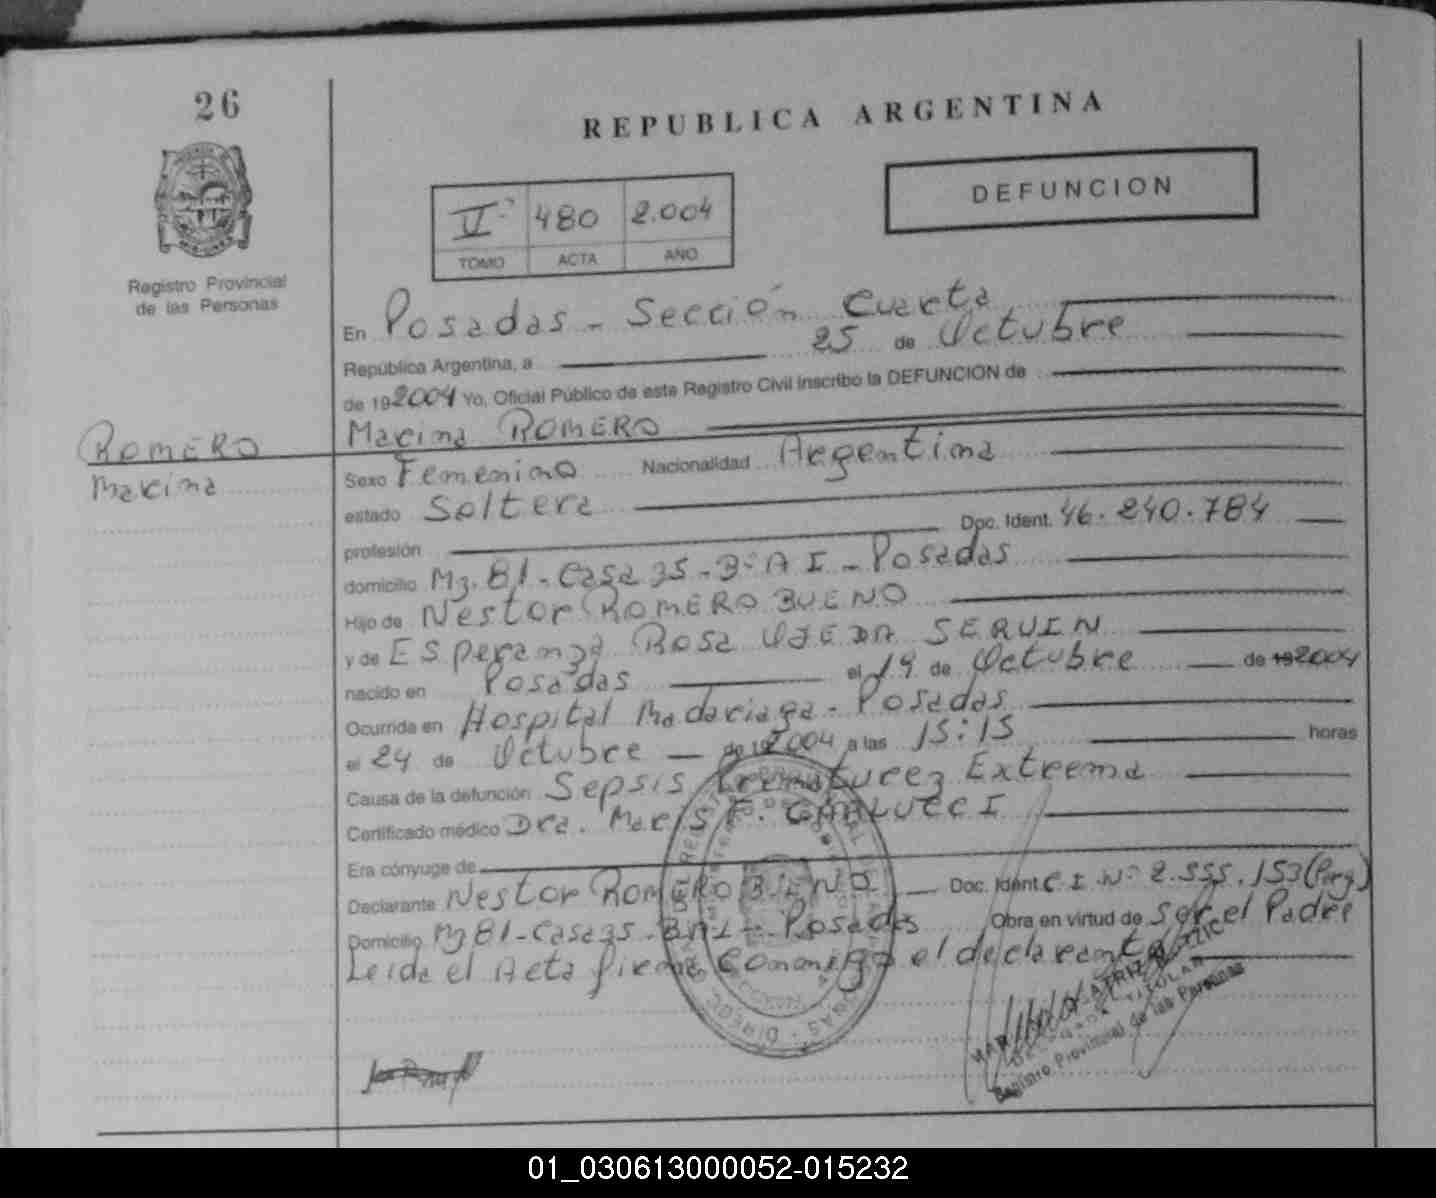 26
REPUBLICA ARGENTINA
DEFUNCION
480 2.004
TOMO ACTA AÑO
Registro Provincial
de las Personas
En Posadas - Sección Cuarta
República Argentina, a 25 de Octubre
de 192004 Yo, Oficial Público de este Registro Civil inscribo la DEFUNCION de
ROMERO
Marina
Marina ROMERO
Sexo Femenino Nacionalidad Argentina
estado Soltera
profesión Doc. Ident. 46.240.784
domicilio Mz. 81 - Casa 35 - Bº A I - Posadas
Hijo de Nestor ROMERO BUENO
y de Esperanza Rosa OJEDA SERVIN
nacido en Posadas el 19 de Octubre de 192004
Ocurrida en Hospital Madariaga - Posadas
el 24 de Octubre de 192004 a las 15:15 horas
Causa de la defunción Sepsis Prematurez Extrema
Certificado médico Dra. F.
Era cónyuge de
Declarante Nestor ROMERO BUENO Doc. Ident C.I. Nº 2.555.153 (Parg)
Domicilio Mz 81 - Casa 35 - Posadas Obra en virtud de Ser el Padre
Leida el Acta firma Conmigo el declarante
Registro Provincial de las Personas
01_030613000052-015232